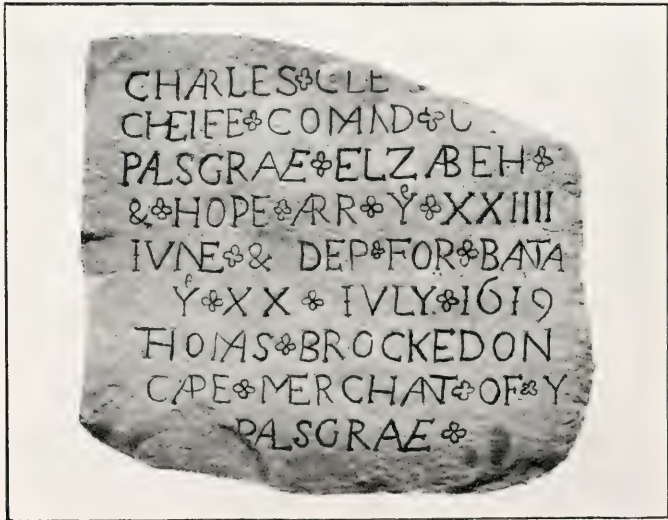 CHARLES ✤ CLE
CHEIFE ✤ COMAND ✤
PALSGRAE ✤ ELZABEH ✤
& ✤ HOPE ✤ ARR ✤ Yᵉ ✤ XXIIII
IVNE ✤ & DEP ✤ FOR ✤ BANTA
Yᵉ ✤ XX ✤ IVLY ✤ 1619
THOMAS ✤ BROCKEDON
CAPE ✤ MERCHANT ✤ OF ✤ Y
PALSGRAE ✤